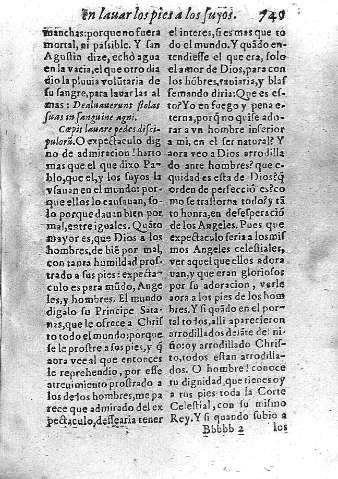 en lauar los pies a los suyos. 749
manchas: porque no fuera
mortal, ni passible. Y san
Agustin dize, echò agua
en la vacia, el que otro dia
dio la pluuia volūtaria de
su sangre, para lauar las al
mas: Dealuauerunt stolas
suas in sanguine agni.
Cœpit lauare pedes disci-
pulorū. O expectaculo dig
no de admiracion! harto
mas que el que dixo Pa-
blo, que el, y los suyos la
vsauan en el mundo: por
que ellos lo causauan, so-
lo porque dauan bien por
mal, entre iguales. Quāto
mayor es, que Dios a los
hombres, de biē por mal,
con tanta humildad pros-
trado a sus pies: expecta-
culo es para mūdo, Ange
les, y hombres. El mundo
digalo su Principe Sata-
nas, que le ofrece a Chris
to todo el mundo; porque
se le prostre a sus pies, y q̄
aora vee al que entonces
le reprehendio, por esse
atreuimiento prostrado a
los de los hombres, me pa
rece que admirado del ex
pectaculo, dessearia tener
el interes, si es mas que to
do el mundo. Y quādo en-
tendiesse el que era, solo
el amor de Dios, para con
los hōbres, rauiaria, y blas
femando diria: Que es es-
to? Yo en fuego y pena e-
terna, porq̄ no quise ado-
rar a vn hombre inferior
a mi, en el ser natural? Y
aora veo a Dios arrodilla
do ante hombres? que e-
quidad es esta de Dios? q̄
orden de perfeccion es? co
mo se trastorna todo? y tā
to honra, en desesperaciō
de los Angeles. Pues que
expectaculo seria a los mis
mos Angeles celestiales,
ver aquel que ellos adora
uan, y que eran gloriosos
por su adoracion, verle
aora a los pies de los hom
bres. Y si quādo en el por-
tal todos, alli aparecieron
arrodillados delāte del ni-
ño; y arrodillado Chris-
to, todos estan arrodilla-
dos. O hombre! conoce
tu dignidad, que tienes oy
a tus pies toda la Corte
Celestial, con su mismo
Rey. Y si quando subio a
Bbbbb 2 los